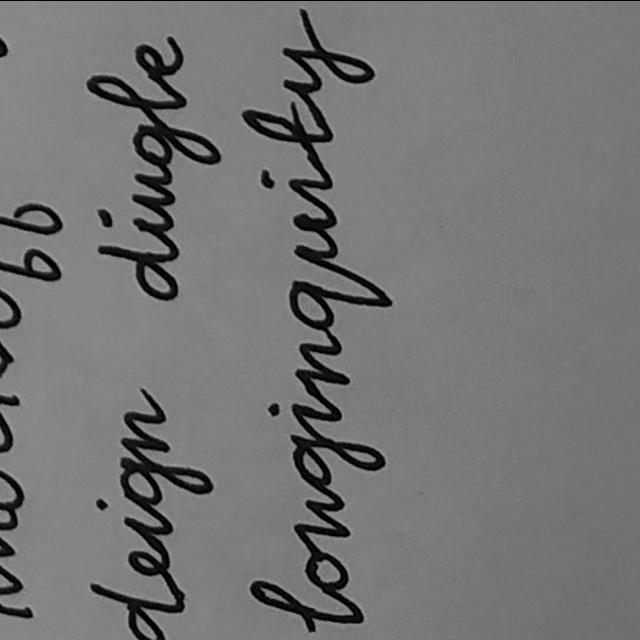 deign dingle
longinquity